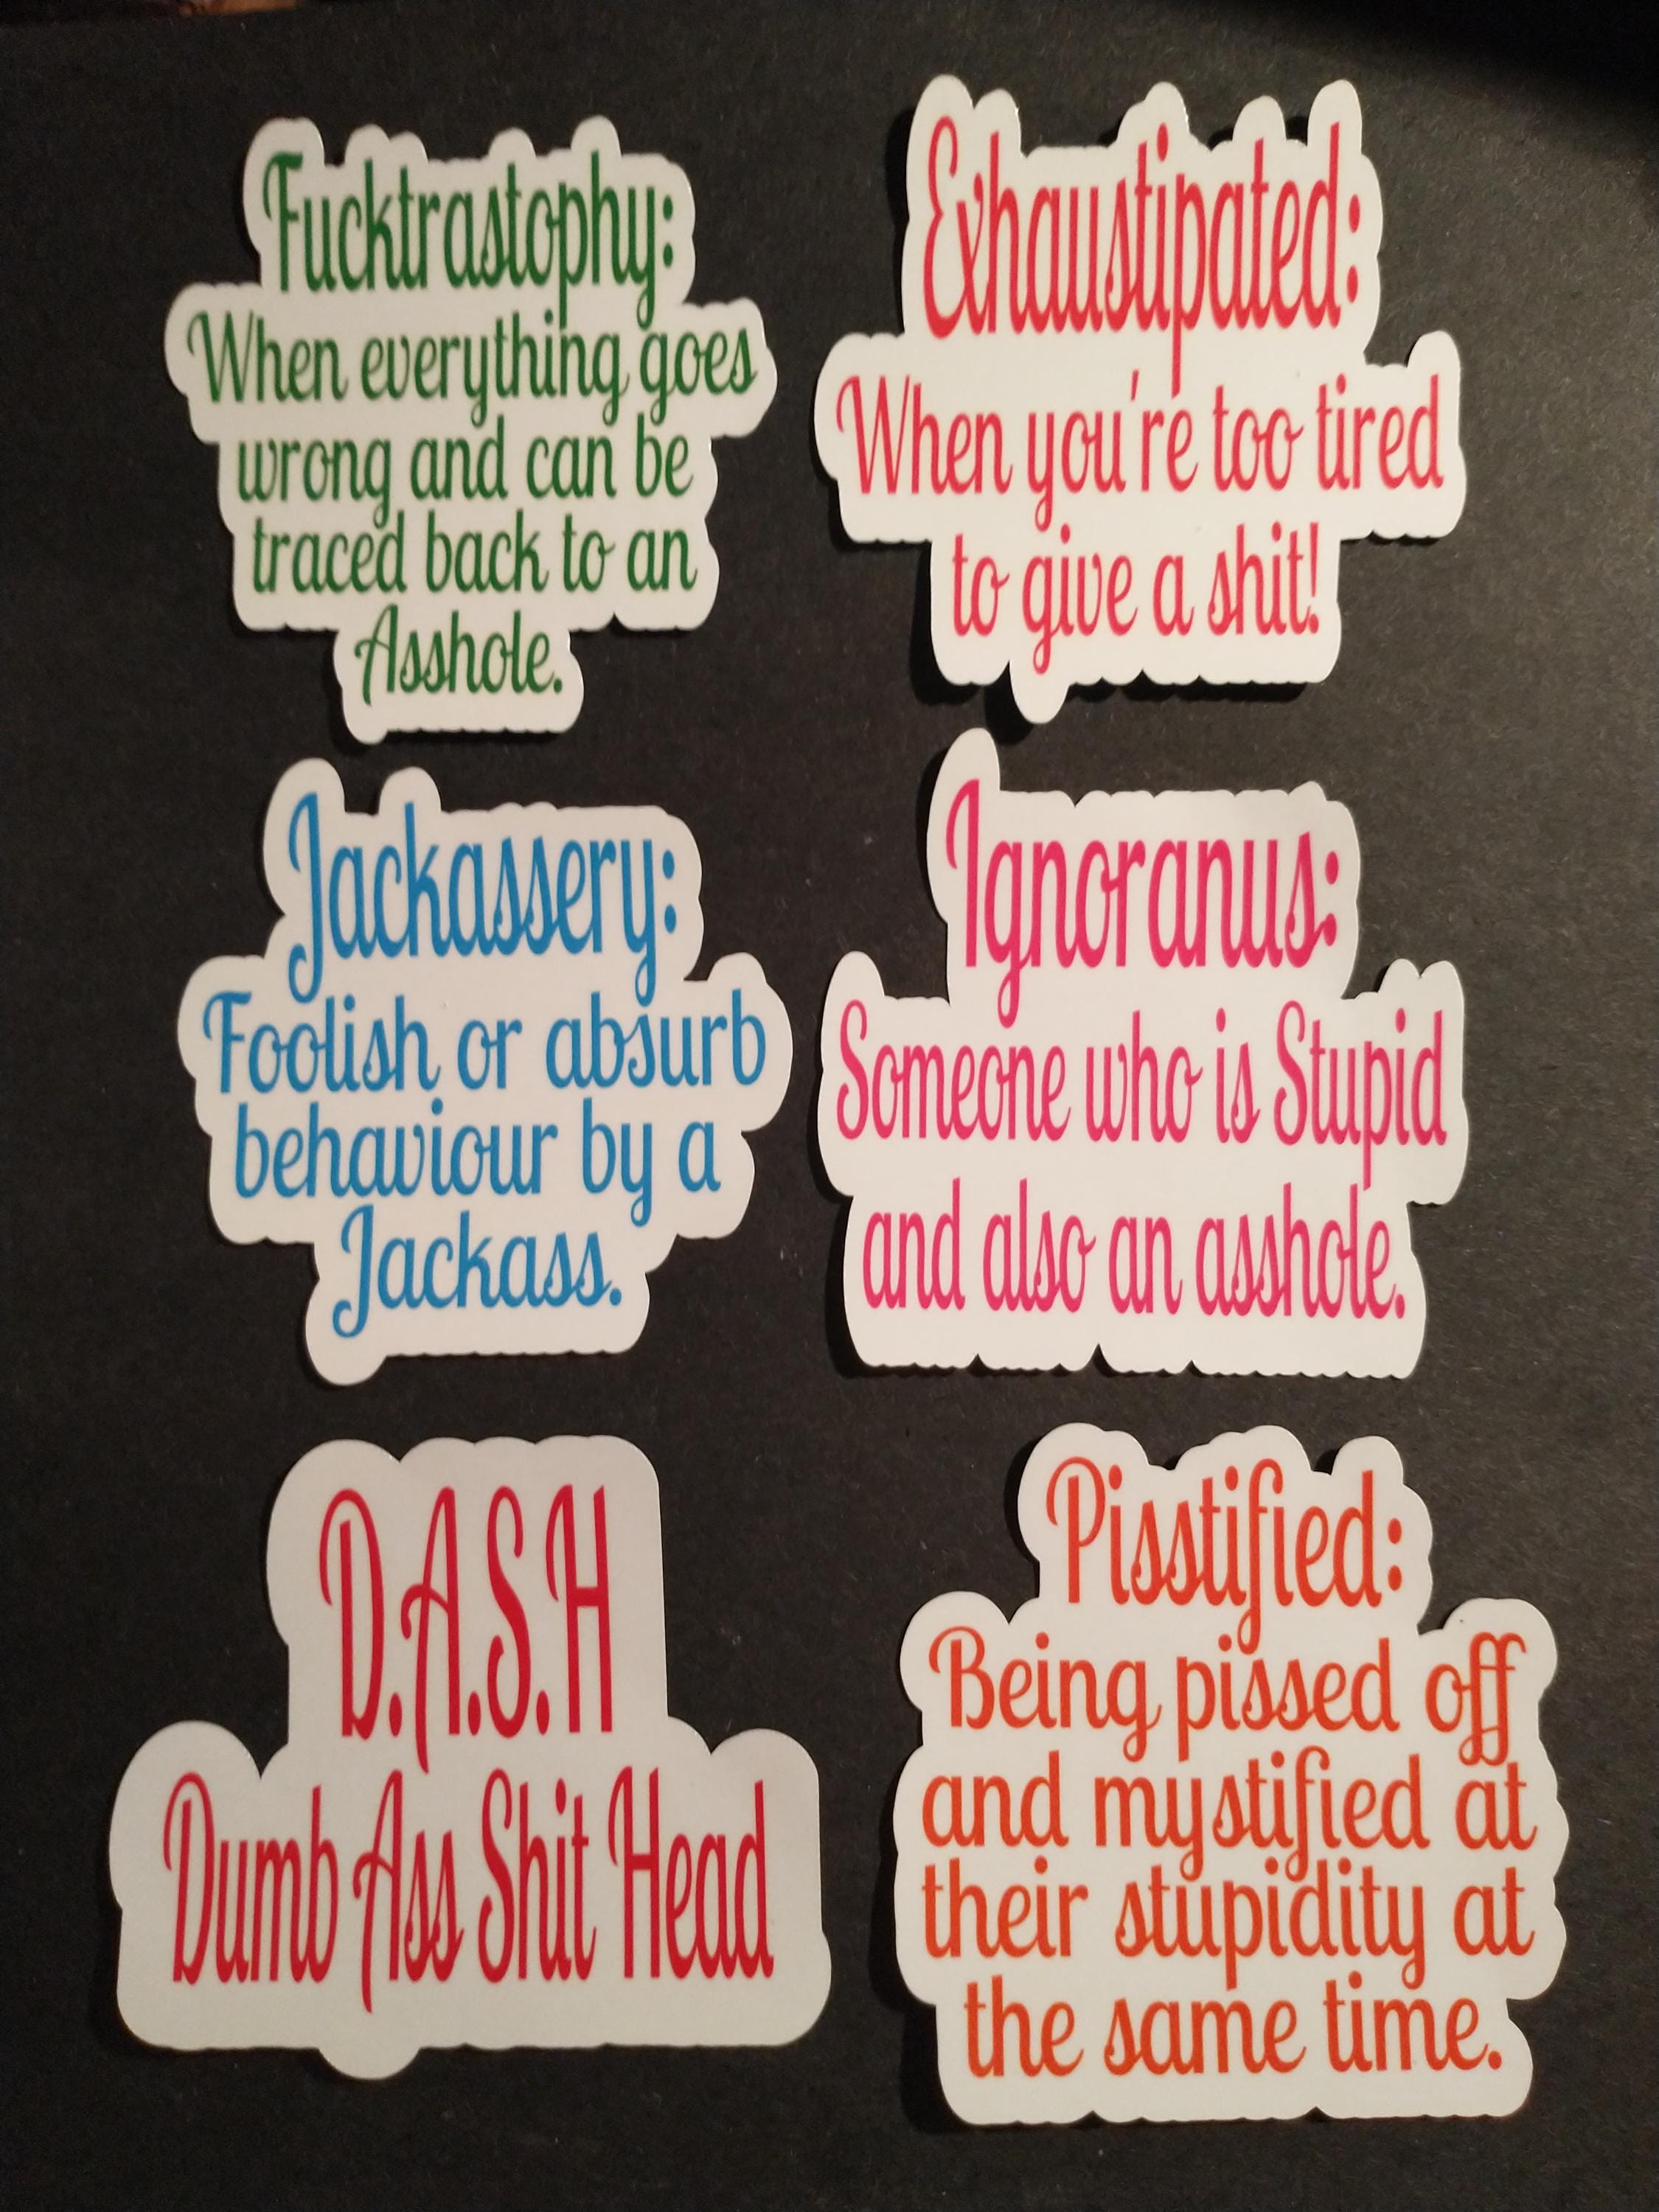 Fucktrastophy:
When everything goes
wrong and can be
traced back to an
Asshole.
Exhaustipated:
When you're too tired
to give a shit!
Jackassery:
Foolish or absurb
behaviour by a
Jackass.
Ignoranus:
Someone who is Stupid
and also an asshole.
D.A.S.H
Dumb Ass Shit Head
Pisstified:
Being pissed off
and mystified at
their stupidity at
the same time.